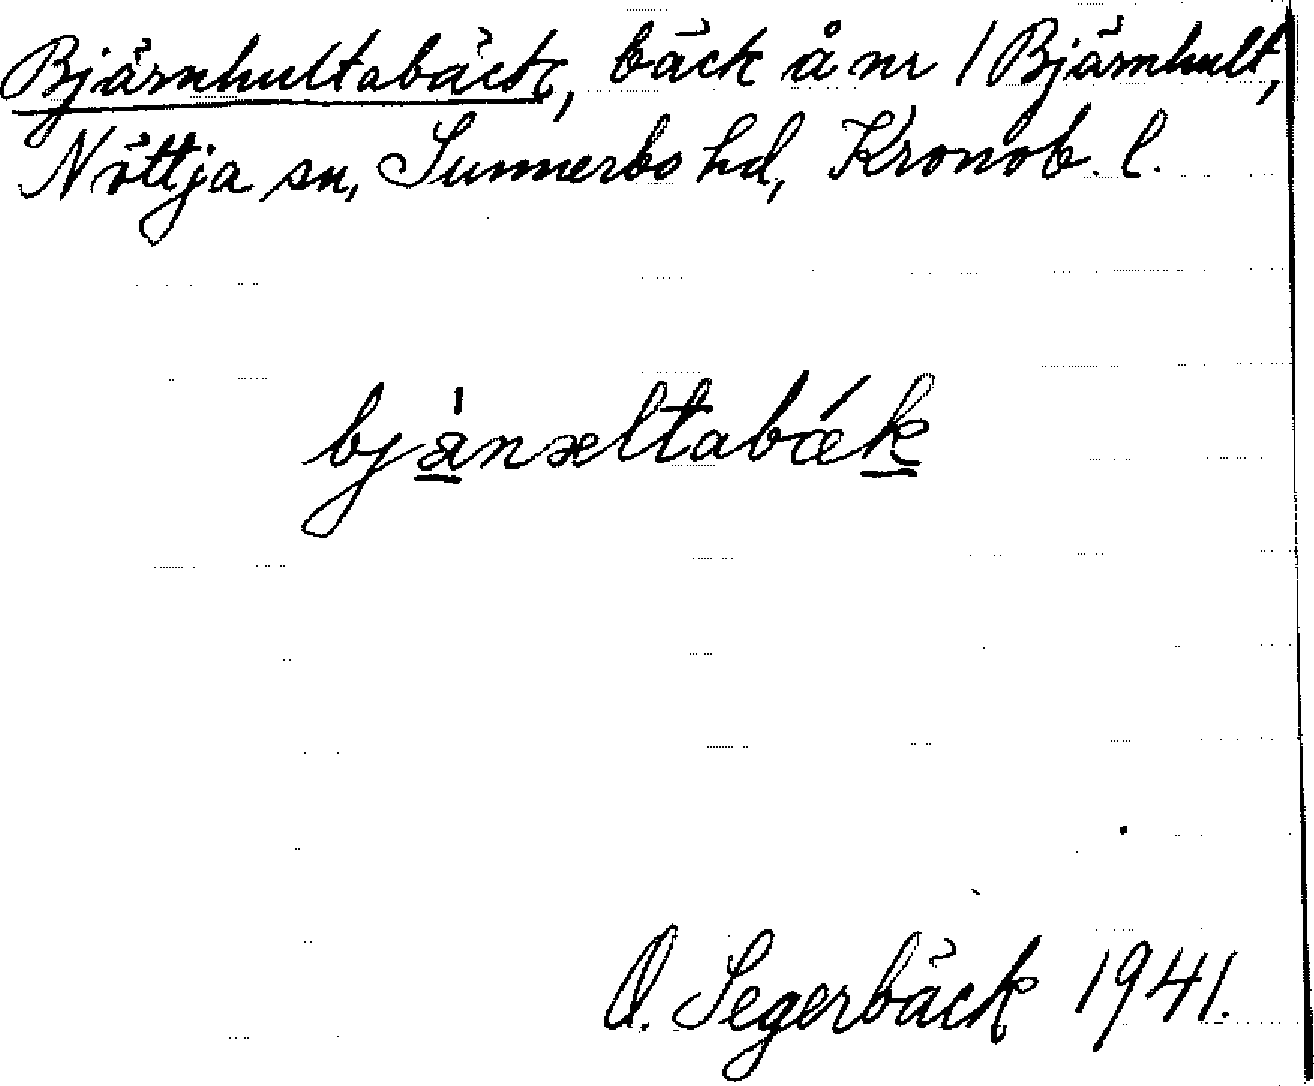 Bjärnhultabäck, bäck å nr 1 Bjärnhult,
Nöttja sn, Sunnerbo hd, Kronob. l.
bjä̀nxltabǽk
O. Segerbäck 1941.